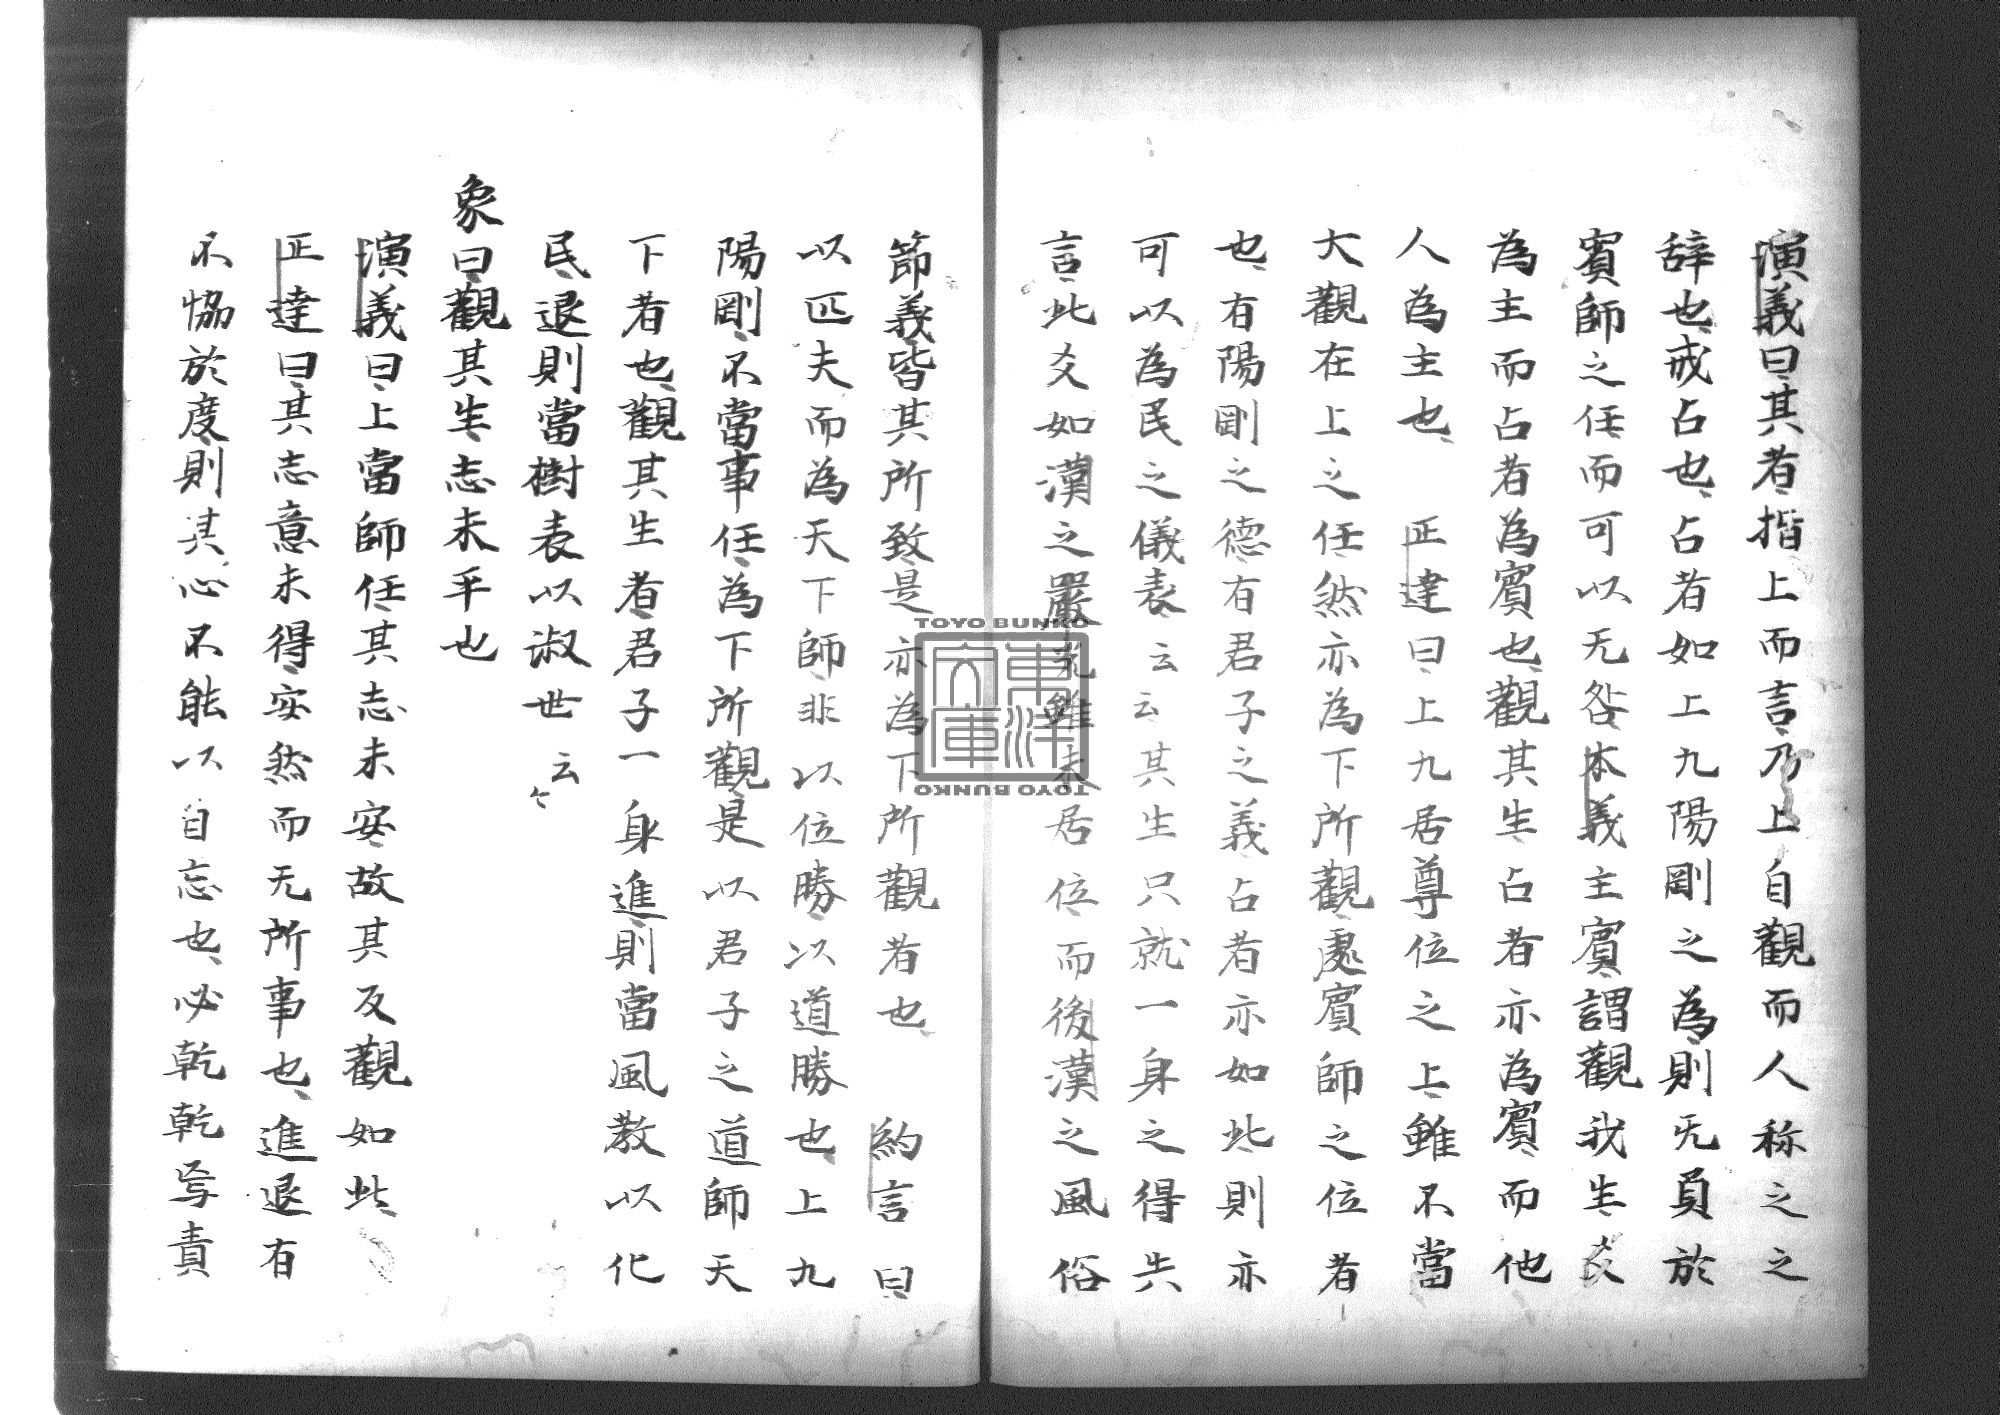 演義曰其者指上而言乃上自觀而人称之之
辞也戒占也占者如上九陽剛之為則无負於
賓師之任而可以无咎本義主賓謂觀我生爻
為主而占者為賓也觀其生占者亦為賓而他
人為主也 正達曰上九居尊位之上雖不當
大觀在上之任然亦為下所觀處賓師之位者
也有陽剛之德有君子之義占者亦如此則亦
可以為民之儀表云云其生只就一身之得失
言此爻如漢之嚴光雖未居位而後漢之風俗
節義皆其所致是亦為下所觀者也 約言曰
以匹夫而為天下師非以位勝以道勝也上九
陽剛不當事任為下所觀是以君子之道師天
下者也觀其生者君子一身進則當風教以化
民退則當樹表以淑世云々
象曰觀其生志未平也
演義曰上當師任其志未安故其反觀如此
正達曰其志意未得安然而无所事也進退有
不恊於度則其心不能以自忘也必乾乾焉責
TOYO BUNKO
東洋文庫
TOYO BUNKO